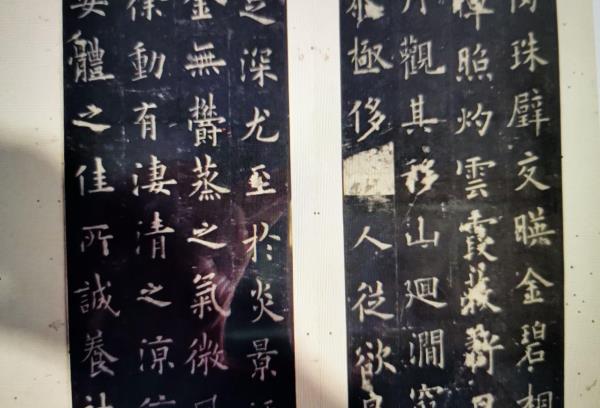 珠壁交暎金碧相
暉照灼雲霞蔽虧日
月觀其移山迴澗窮
泰極侈人從欲良
足深尤至於炎景
金無鬱蒸之氣微風
徐動有淒清之涼信
安體之佳所誠養神